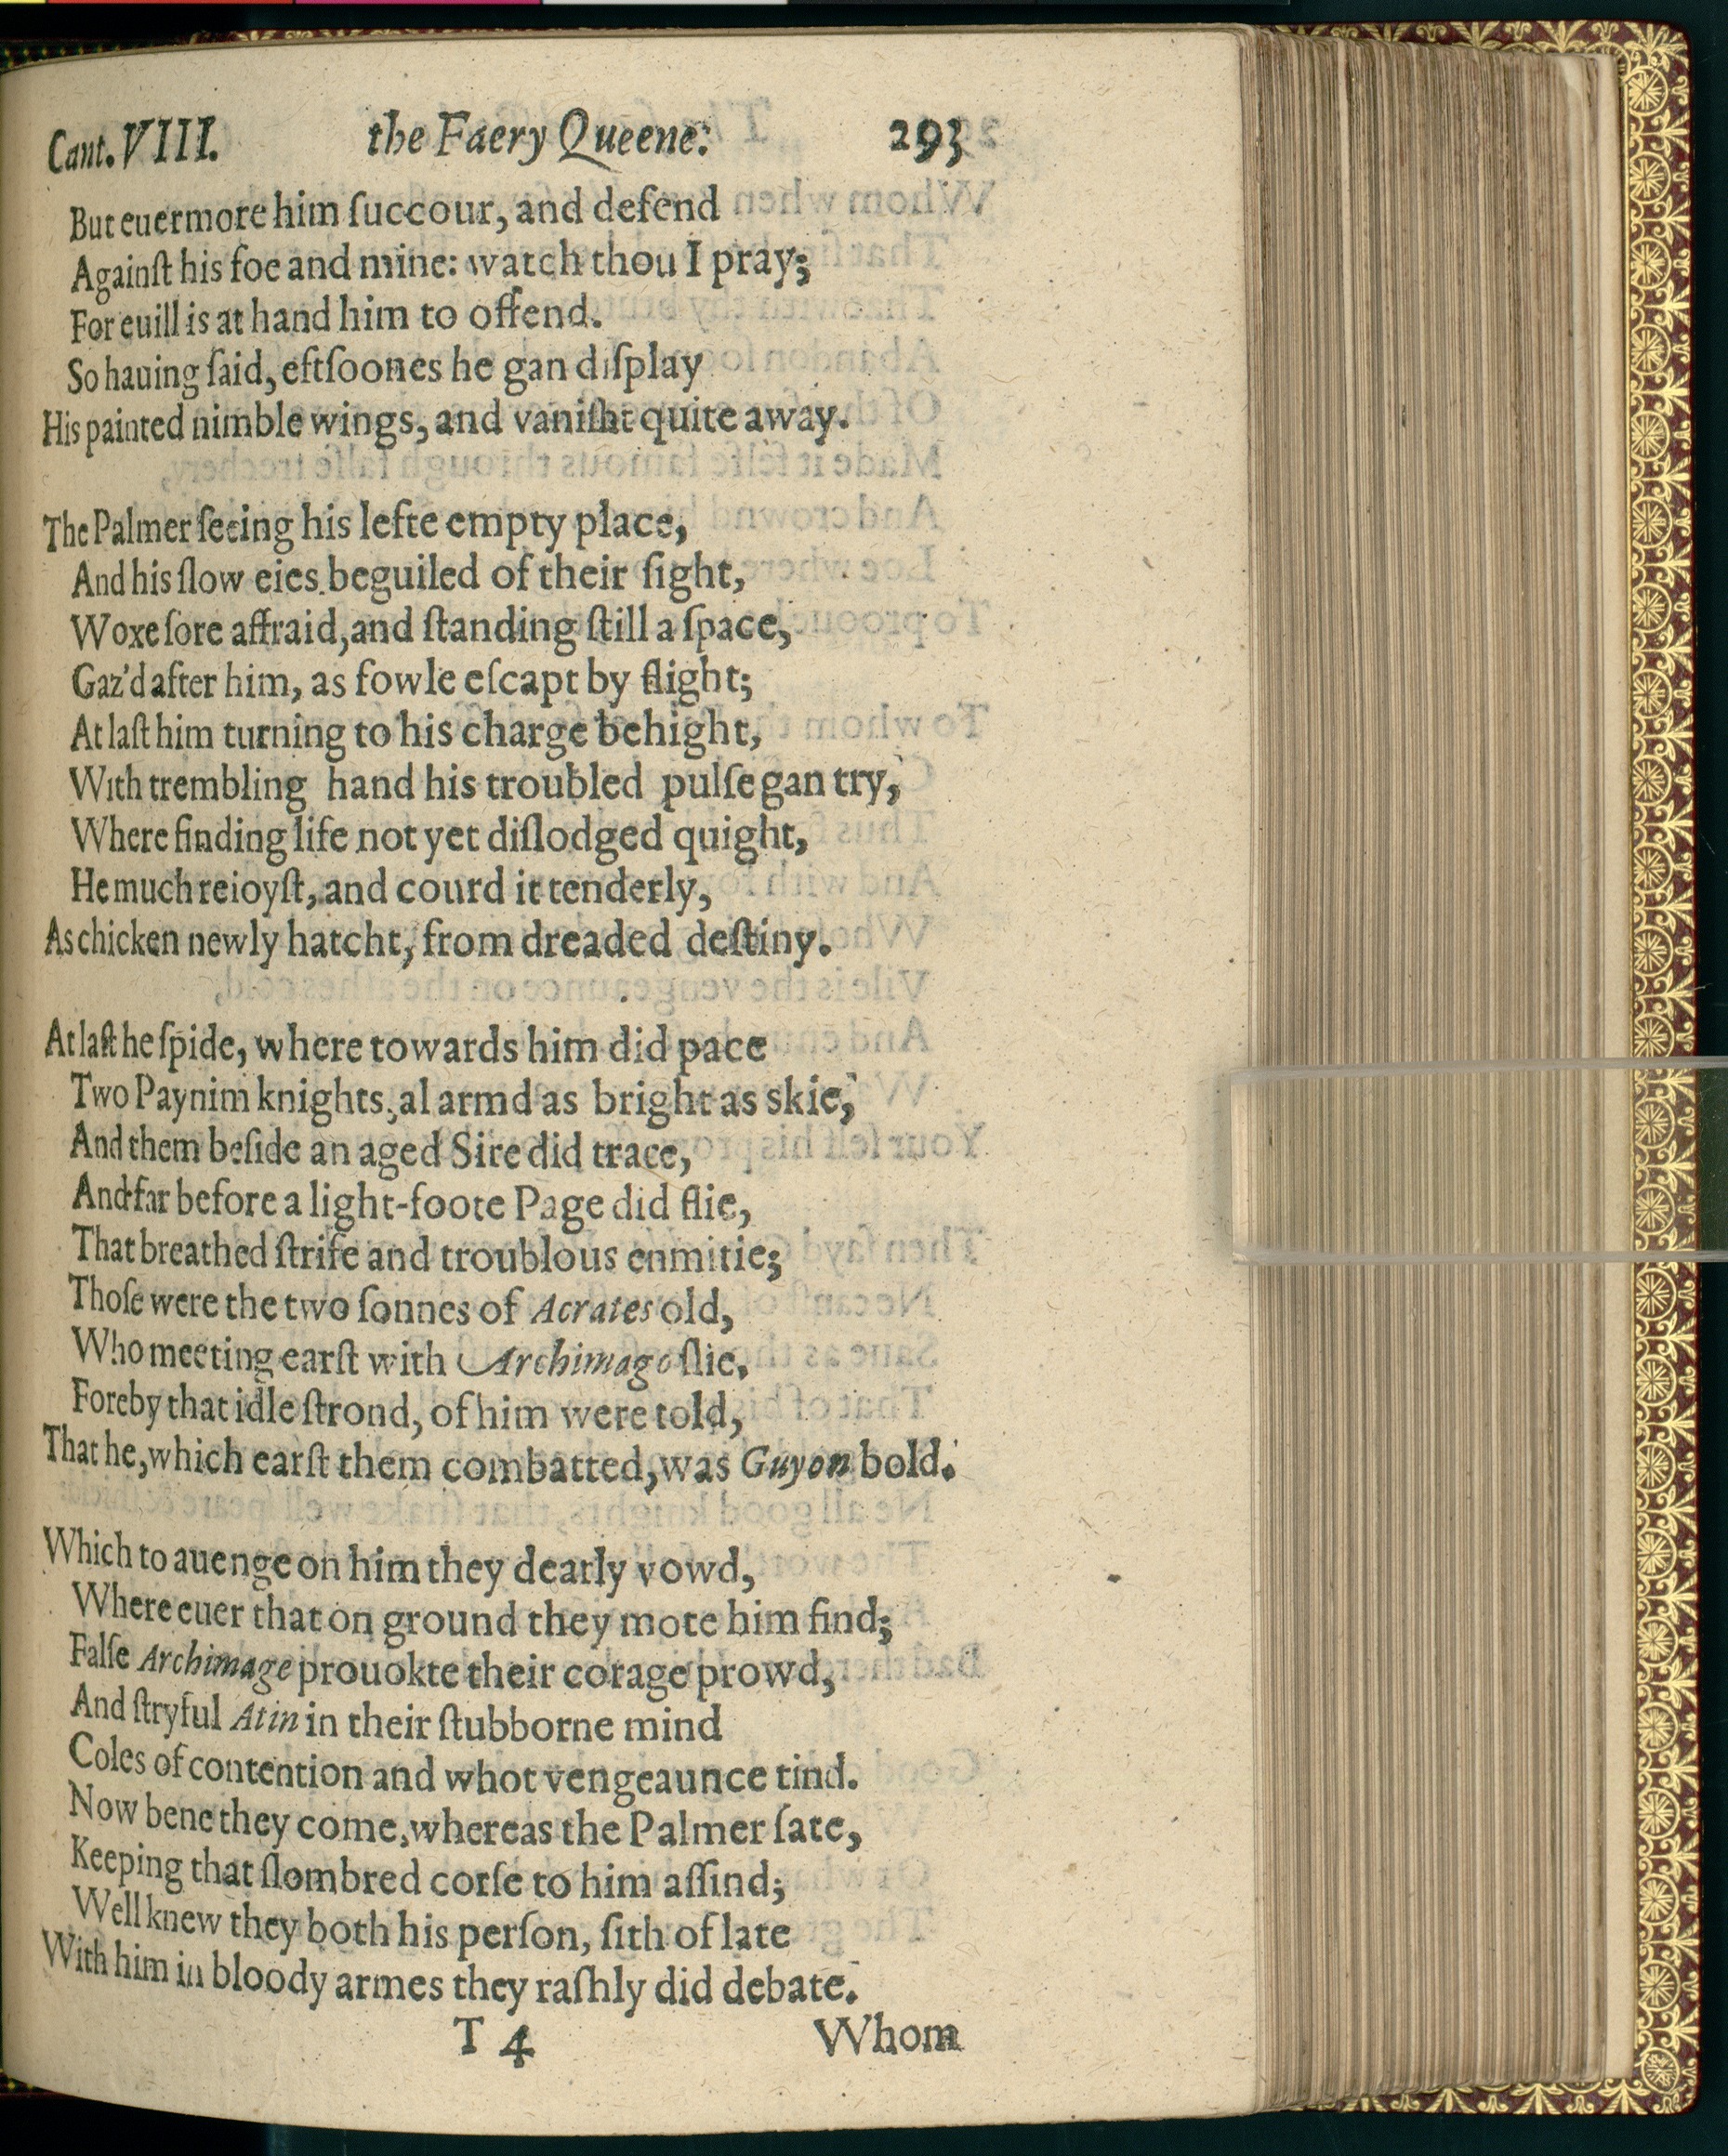 Cant. VIII. the Faery Queene. 293
But euermore him ſuccour, and defend
Againſt his foe and mine: watch thou I pray;
For euill is at hand him to offend.
So hauing ſaid, eftſoones he gan diſplay
His painted nimble wings, and vaniſht quite away.
The Palmer ſeeing his lefte empty place,
And his ſlow eies beguiled of their ſight,
Woxe ſore affraid, and ſtanding ſtill a ſpace,
Gaz'd after him, as fowle eſcapt by flight;
At laſt him turning to his charge behight,
With trembling hand his troubled pulſe gan try,
Where finding life not yet diſlodged quight,
He much reioyſt, and courd it tenderly,
As chicken newly hatcht, from dreaded deſtiny.
At laſt he ſpide, where towards him did pace
Two Paynim knights, al armd as bright as skie,
And them beſide an aged Sire did trace,
And far before a light-foote Page did flie,
That breathed ſtrife and troublous enmitie;
Thoſe were the two ſonnes of Acrates old,
Who meeting earſt with Archimago ſlie,
Foreby that idle ſtrond, of him were told,
That he, which earſt them combatted, was Guyon bold.
Which to auenge on him they dearly vowd,
Where euer that on ground they mote him find;
Falſe Archimage prouokte their corage prowd,
And ſtryful Atin in their ſtubborne mind
Coles of contention and whot vengeaunce tind.
Now bene they come, whereas the Palmer ſate,
Keeping that ſlombred corſe to him aſſind;
Well knew they both his perſon, ſith of late
With him in bloody armes they raſhly did debate.
T 4 Whom